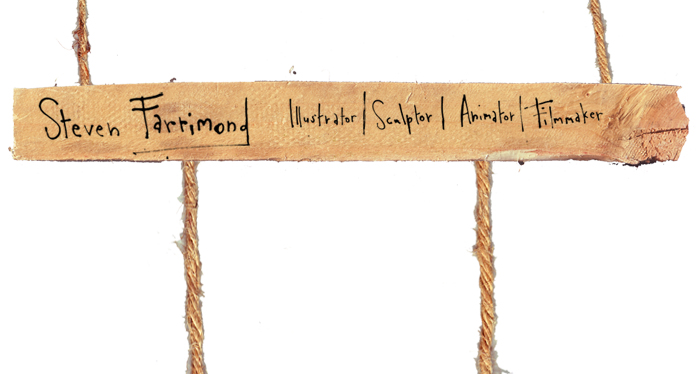 Steven Farrimond Illustrator | Sculptor | Animator | Filmmaker